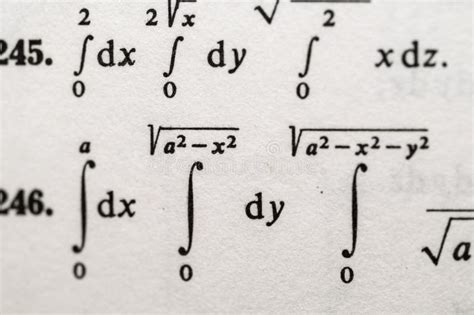 245. ∫₀² dx ∫₀^{2√x} dy ∫₀^{√2} x dz.
246. ∫₀ᵃ dx ∫₀^{√(a² − x²)} dy ∫₀^{√(a² − x² − y²)} √a